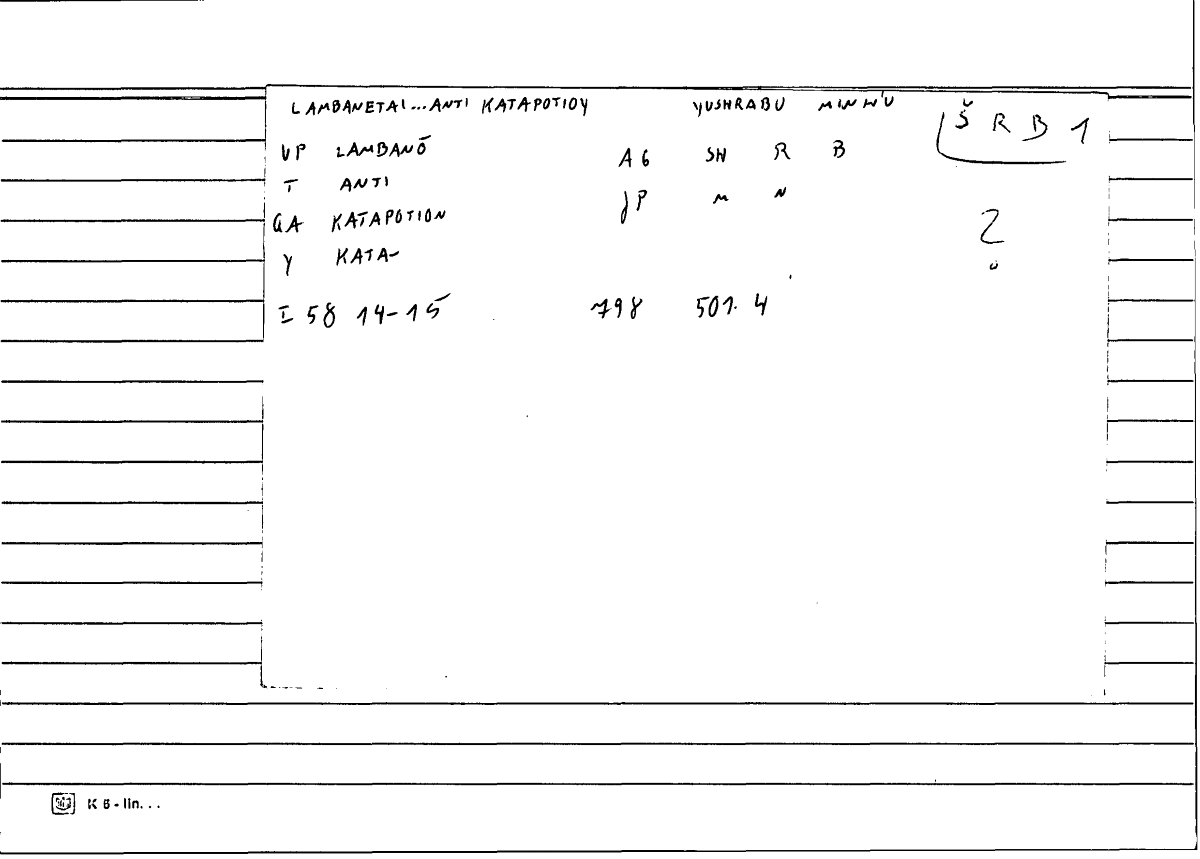 LAMBANETAI...ANTI KATAPOTIOY YUSHRABU MINHU
ŠRB 1
VP LAMBANŌ A6 SH R B
T ANTI JP M N
QA KATAPOTION
2
Y KATA-
I 58 14-15 798 501.4
K 6 - lin...